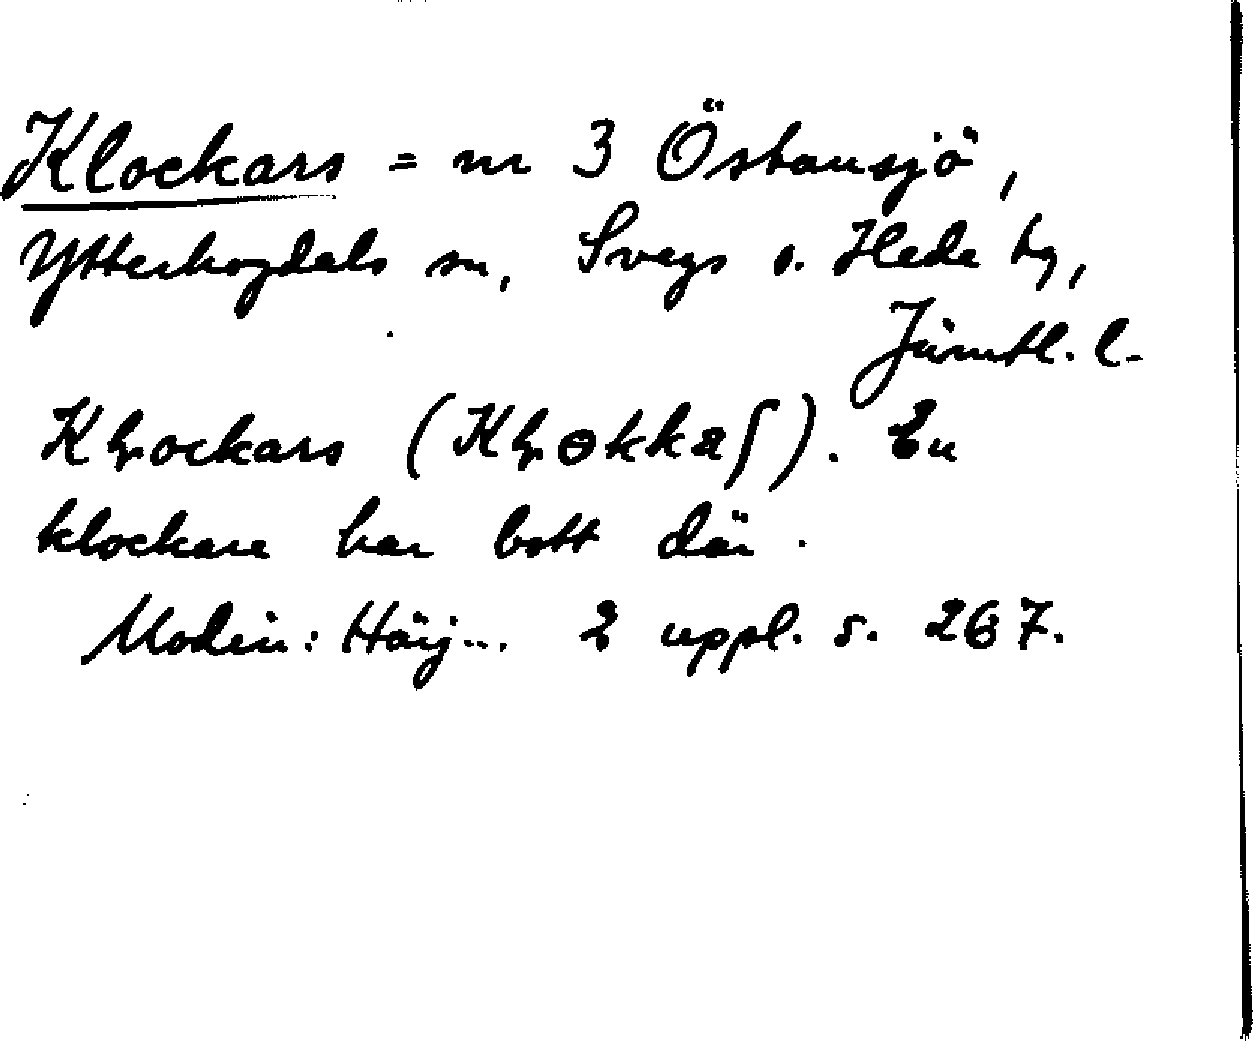 Klockars = nr 3 Östansjö,
Ytterhogdals sn, Svegs o. Hede tg,
Jämtl. l.
Khockars (Khokkaʃ). En
klockare har bott där.
Modin: Härj... 2 uppl. s. 267.